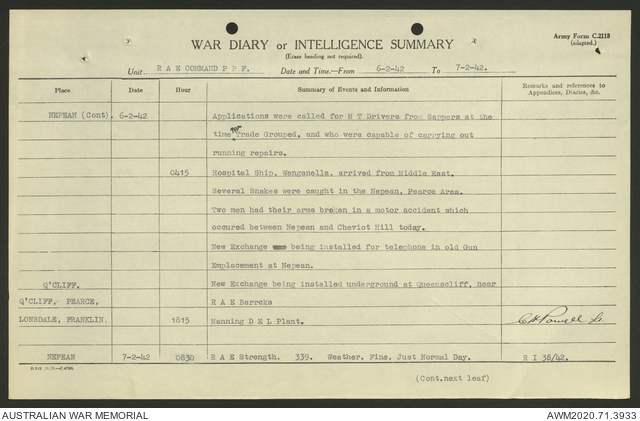 Army Form C.2118
(adapted.)
WAR DIARY or INTELLIGENCE SUMMARY
(Erase heading not required).
Unit R A E COMMAND P P F. Date and Time.—From 6-2-42 To 7-2-42.
Place Date Hour Summary of Events and Information Remarks and references to Appendices, Diaries, &c.
NEPEAN (Cont). 6-2-42 Applications were called for M T Drivers from Sappers at the
time Trade Grouped, and who were capable of carrying out
running repairs.
0415 Hospital Ship, Wanganella, arrived from Middle East.
Several Snakes were caught in the Nepean, Pearce Area.
Two men had their arms broken in a motor accident which
occured between Nepean and Cheviot Hill today.
New Exchange being installed for telephone in old Gun
Emplacement at Nepean.
Q'CLIFF. New Exchange being installed underground at Queenscliff, near
Q'CLIFF, PEARCE, R A E Barrcks
LONSDALE, FRANKLIN. 1815 Manning D E L Plant. Powell Lt.
NEPEAN 7-2-42 0830 R A E Strength. 339. Weather. Fine. Just Normal Day. R I 38/42.
(Cont.next leaf)
AUSTRALIAN WAR MEMORIAL AWM2020.71.3933